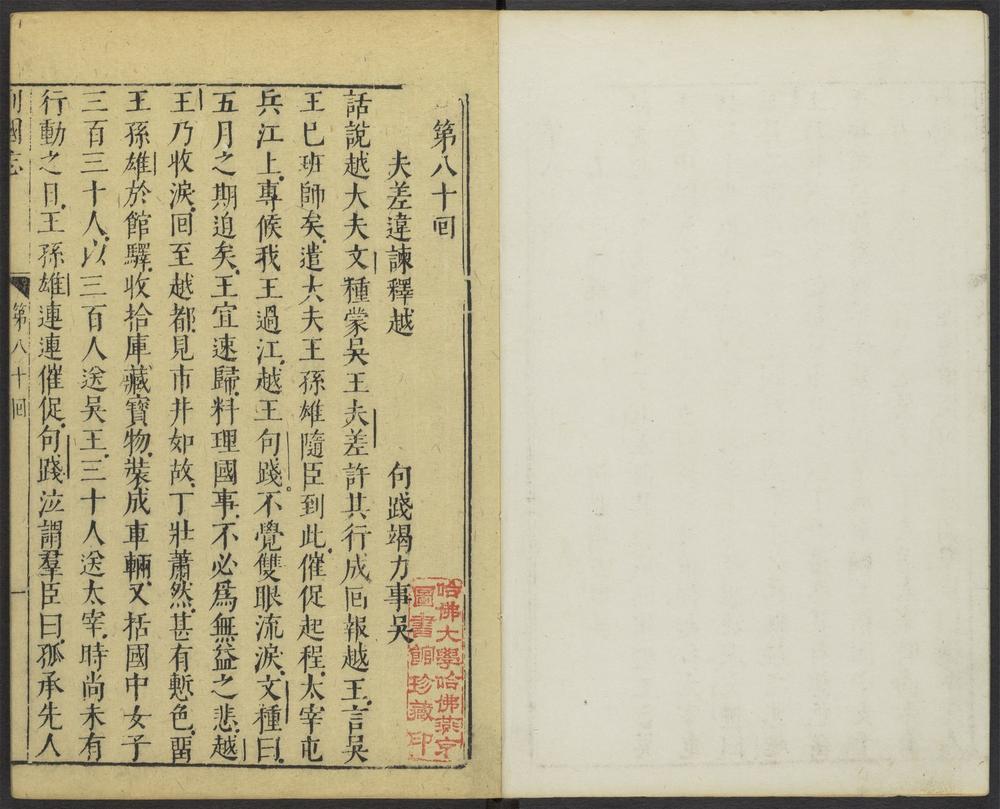 第八十回
夫差違諫釋越　句踐竭力事吳
話說越大夫文種蒙吳王夫差許其行成回報越王言吳
王巳班師矣遣大夫王孫雄隨臣到此催促起程太宰屯
兵江上專候我王過江越王句踐不覺雙眼流淚文種曰
五月之期迫矣王宜速歸料理國事不必爲無益之悲越
王乃收淚回至越都見市井如故丁壯蕭然甚有慙色畱
王孫雄於館驛收拾庫藏寶物裝成車輛又括國中女子
三百三十人以三百人送吳王三十人送太宰時尚未有
行動之日王孫雄連連催促句踐泣謂羣臣曰孤承先人
列國志　第八十回　一
哈佛大學哈佛燕京
圖書館珍藏印